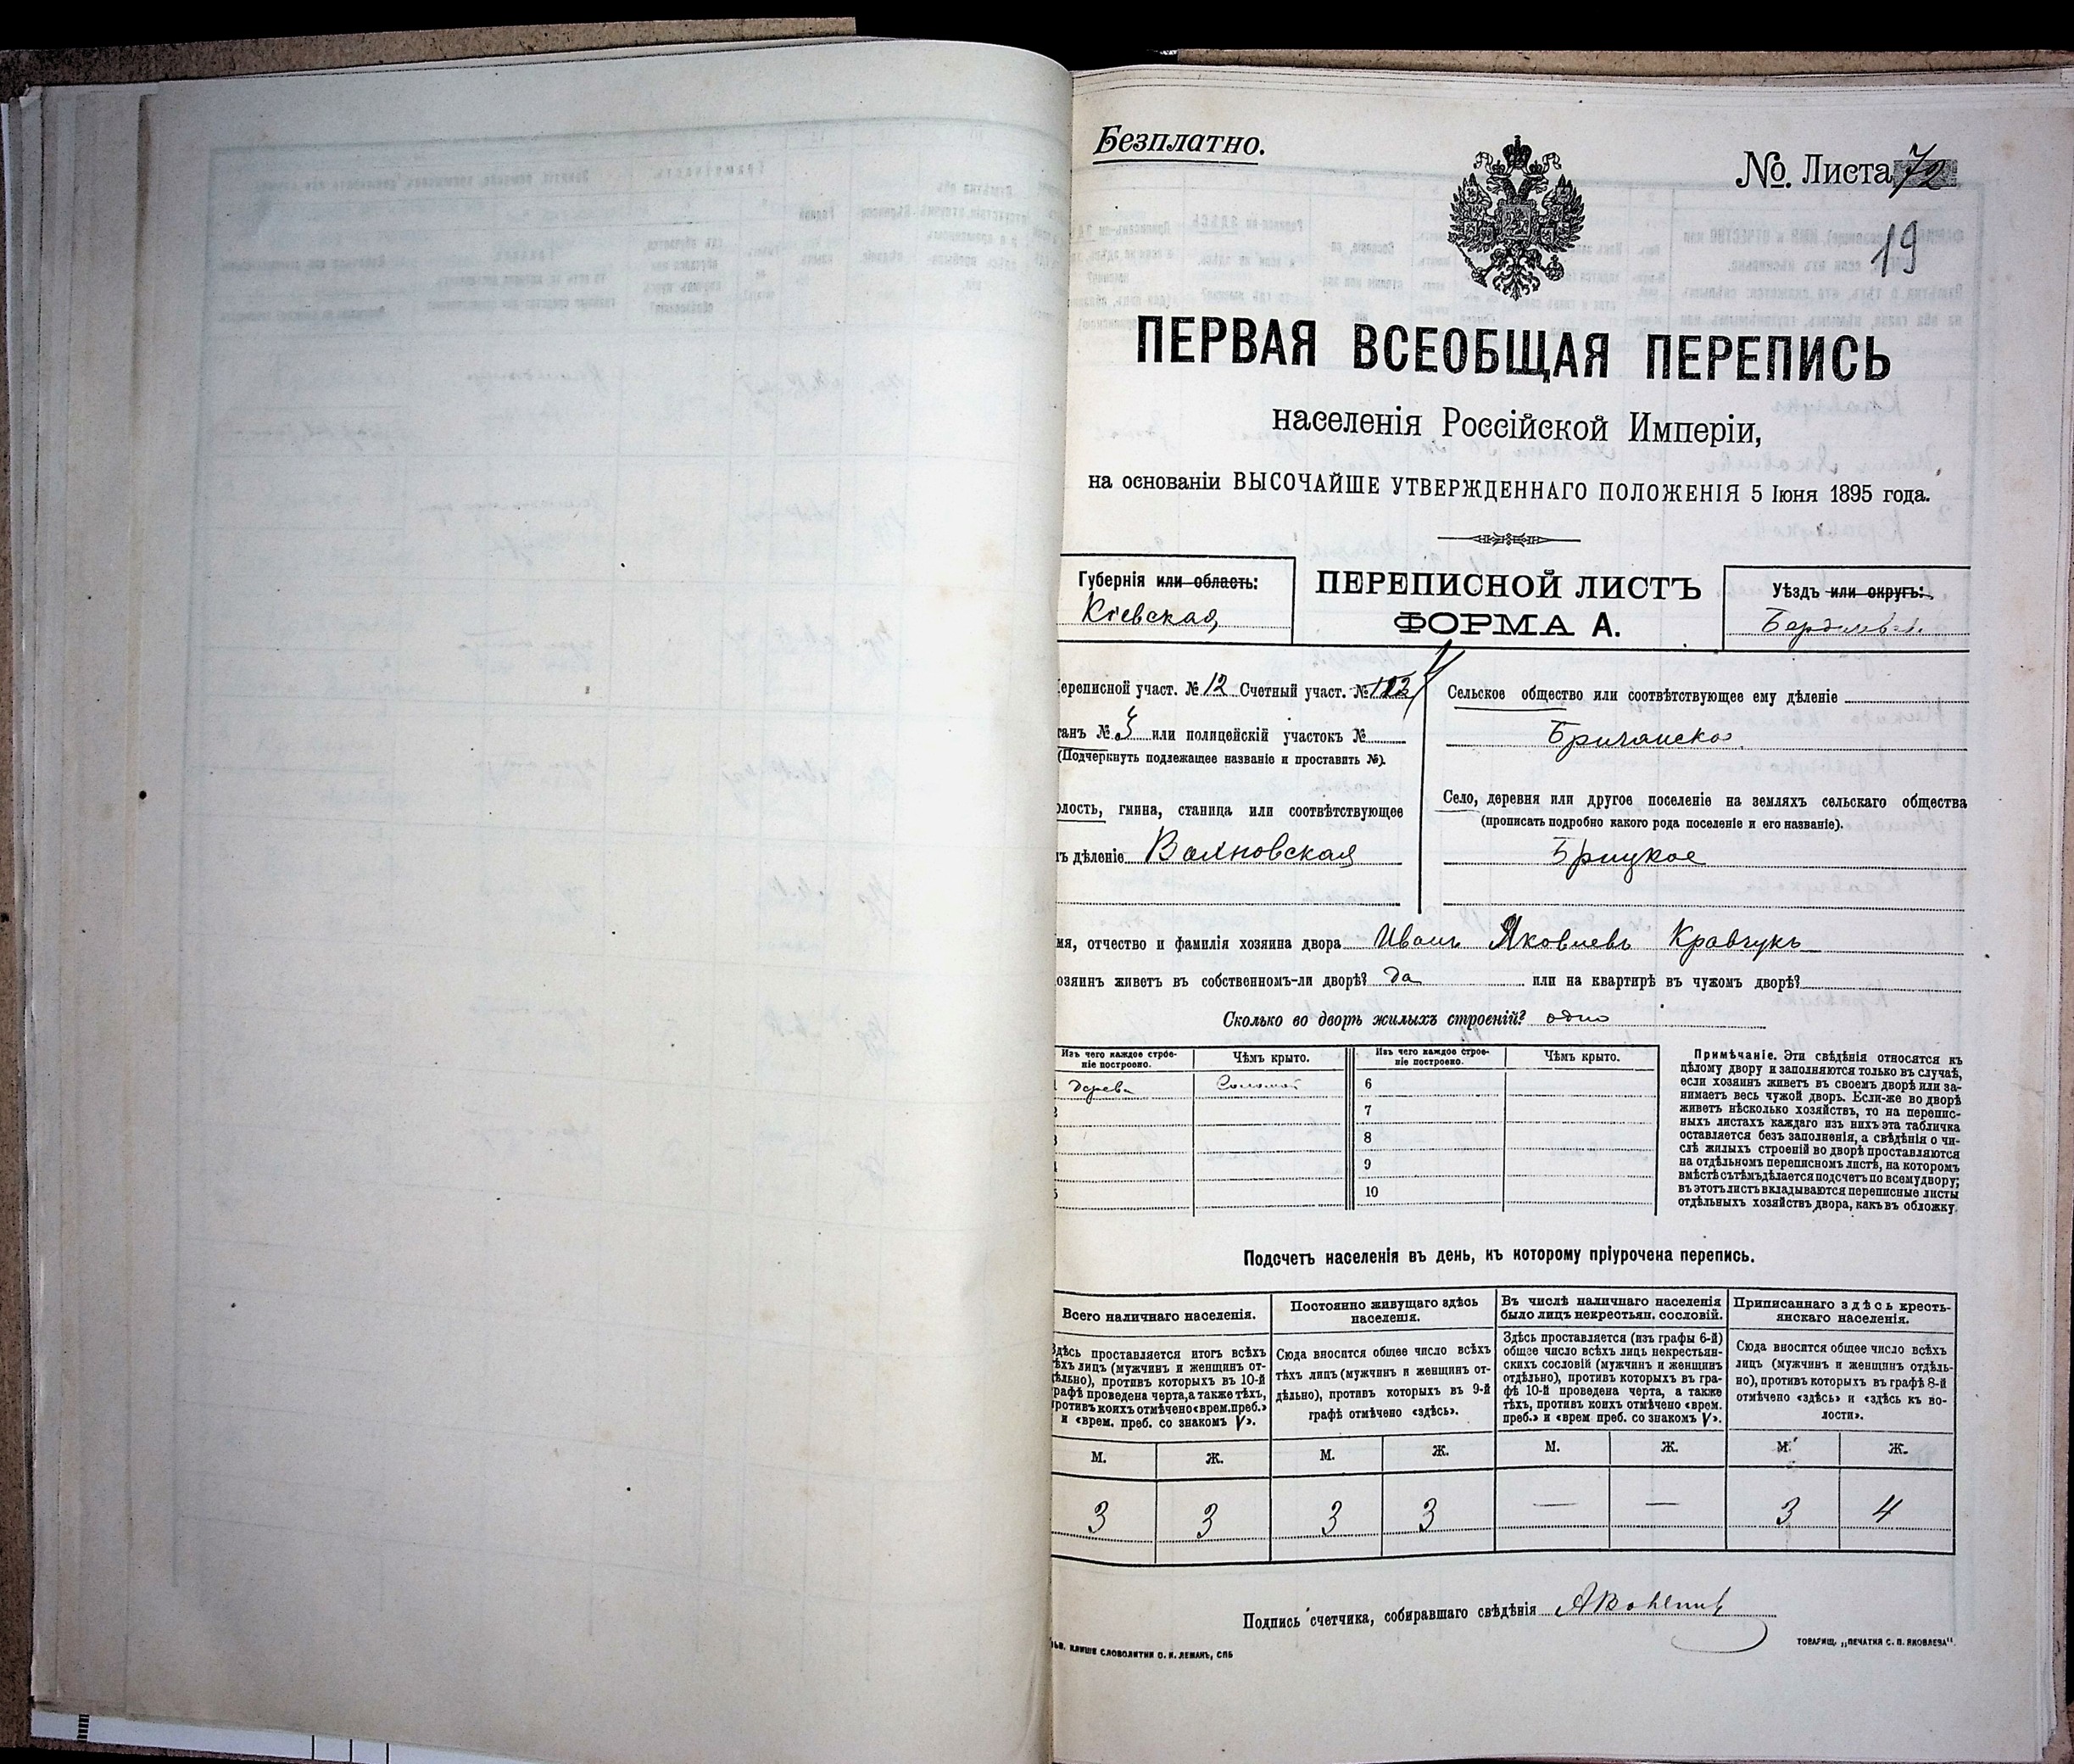 Безплатно.
№. Листа 72
19
ПЕРВАЯ ВСЕОБЩАЯ ПЕРЕПИСЬ
населенія Россійской Имперіи,
на основаніи ВЫСОЧАЙШЕ УТВЕРЖДЕННАГО ПОЛОЖЕНІЯ 5 Іюня 1895 года.
Губернія или область:
Кіевская
ПЕРЕПИСНОЙ ЛИСТЪ
ФОРМА А.
Уѣздъ или округъ:
ереписной участ. № 12 Счетный участ. №
танъ № 3 или полицейскій участокъ №
(Подчеркнуть подлежащее названіе и проставить №).
олость, гмина, станица или соотвѣтствующее
ъ дѣленіе
Сельское общество или соотвѣтствующее ему дѣленіе
Село, деревня или другое поселеніе на земляхъ сельскаго общества
(прописать подробно какого рода поселеніе и его названіе).
Брицкое
мя, отчество и фамилія хозяина двора Иванъ Яковлевъ Кравчукъ
озяинъ живетъ въ собственномъ-ли дворѣ? да или на квартирѣ въ чужомъ дворѣ?
Сколько во дворѣ жилыхъ строеній? одно
Изъ чего каждое строе-
ніе построено.
Чѣмъ крыто.
Изъ чего каждое строе-
ніе построено.
Чѣмъ крыто.
1 дерева Соломой 6
2 7
3 8
4 9
5 10
Примѣчаніе. Эти свѣдѣнія относятся къ
цѣлому двору и заполняются только въ случаѣ,
если хозяинъ живетъ въ своемъ дворѣ или за-
нимаетъ весь чужой дворъ. Если-же во дворѣ
живетъ нѣсколько хозяйствъ, то на перепис-
ныхъ листахъ каждаго изъ нихъ эта табличка
оставляется безъ заполненія, а свѣдѣнія о чи-
слѣ жилыхъ строеній во дворѣ проставляются
на отдѣльномъ переписномъ листѣ, на которомъ
вмѣстѣ съ тѣмъ дѣлается подсчетъ по всему двору;
въ этотъ листъ вкладываются переписные листы
отдѣльныхъ хозяйствъ двора, какъ въ обложку.
Подсчетъ населенія въ день, къ которому пріурочена перепись.
Всего наличнаго населенія.
Здѣсь проставляется итогъ всѣхъ
тѣхъ лицъ (мужчинъ и женщинъ от-
дѣльно), противъ которыхъ въ 10-й
графѣ проведена черта, а также тѣхъ,
противъ коихъ отмѣчено «врем. преб.»
и «врем. преб. со знакомъ V».
Постоянно живущаго здѣсь
населенія.
Сюда вносится общее число всѣхъ
тѣхъ лицъ (мужчинъ и женщинъ от-
дѣльно), противъ которыхъ въ 9-й
графѣ отмѣчено «здѣсь».
Въ числѣ наличнаго населенія
было лицъ некрестьян. сословій.
Здѣсь проставляется (изъ графы 6-й)
общее число всѣхъ лицъ некрестьян-
скихъ сословій (мужчинъ и женщинъ
отдѣльно), противъ которыхъ въ гра-
фѣ 10-й проведена черта, а также
тѣхъ, противъ коихъ отмѣчено «врем.
преб.» и «врем преб. со знакомъ V».
Приписаннаго здѣсь кресть-
янскаго населенія.
Сюда вносится общее число всѣхъ
лицъ (мужчинъ и женщинъ отдѣль-
но), противъ которыхъ въ графѣ 8-й
отмѣчено «здѣсь» и «здѣсь къ во-
лости».
М. Ж. М. Ж. М. Ж. М. Ж.
3 3 3 3 — — 3 4
Подпись счетчика, собиравшаго свѣдѣнія
КЛИШЕ СЛОВОЛИТНИ О. И. ЛЕМАНЪ, СПБ
ТОВАРИЩ. „ПЕЧАТНЯ С. П. ЯКОВЛЕВА".